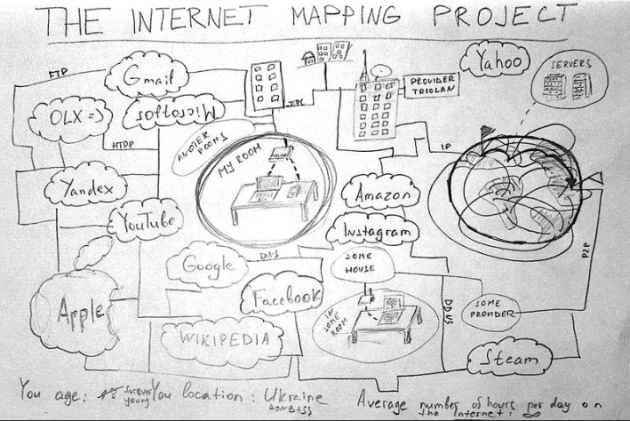 THE INTERNET MAPPING PROJECT
FTP
Gmail
Yahoo
SERVERS
PROVIDER
TRIOLAN
OLX =)
Microsoft
ANOTHER
ROOMS
HTDP
IP
MY ROOM
Yandex
Amazon
YouTube
Instagram
P2P
Google
SOME
HOUSE
Facebook
Apple
SOME
PROVIDER
IN
SOME
ROOM
WIKIPEDIA
Steam
You age: forever
young
You location: Ukraine
DONBASS
Average number of hours per day on
the internet: ∞